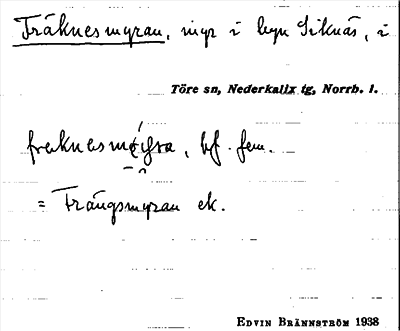 Träknesmyran, myr i byn Siknäs, i
Töre sn, Nederkalix tg, Norrb. l.
bf. fem.
= Trängsmyran ek.
EDVIN BRÄNNSTRÖM 1938